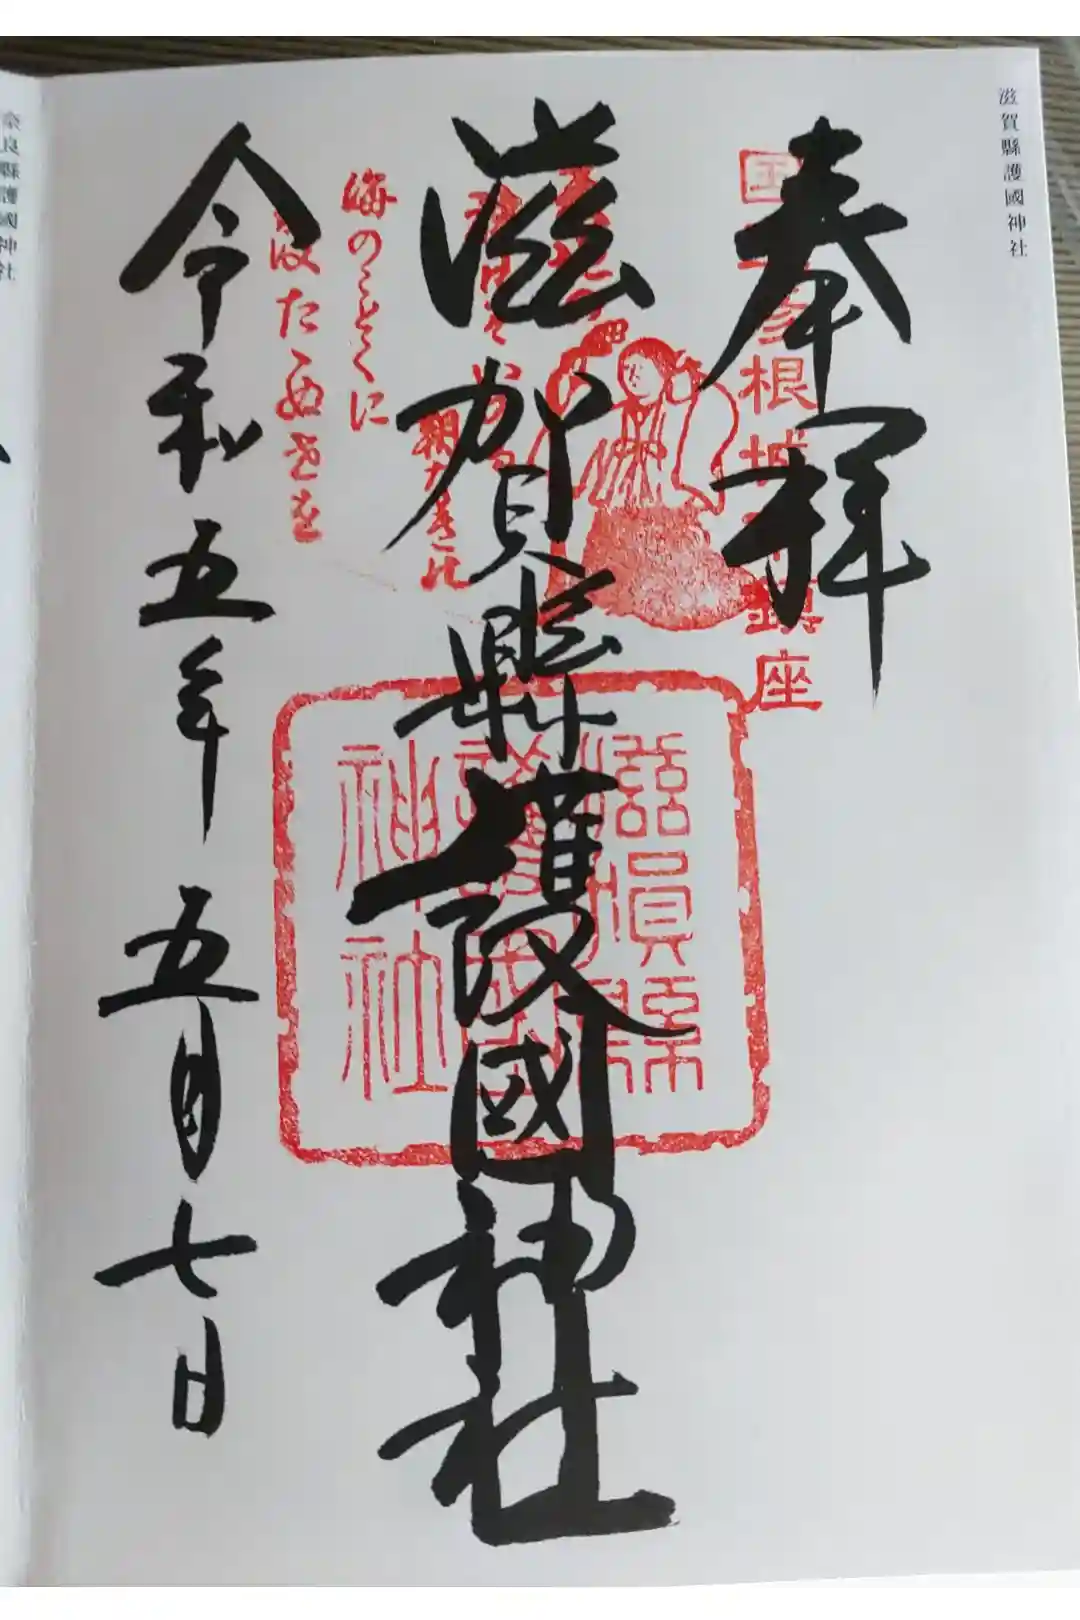 滋賀縣護國神社
奉拝
根城
鎮座
滋賀縣護國神社
滋賀縣護國神社
海のことくに
たゆせを
令和五年五月七日
奈良縣護國神社